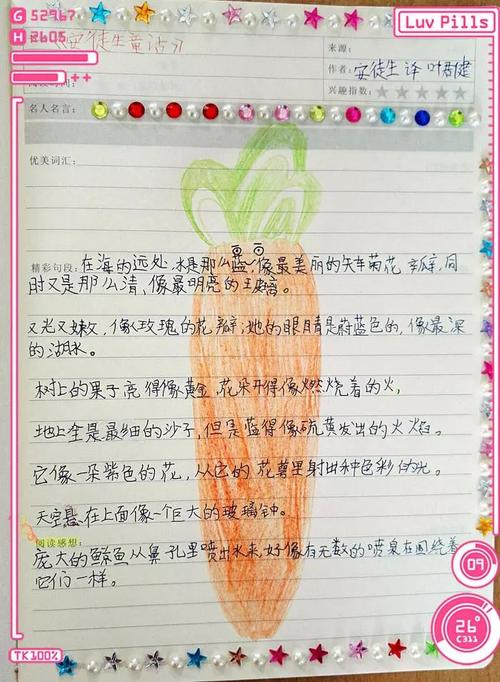 G 52967
H 2605
Luv Pills
《安徒生童话》
来源：
作者：安徒生 译 叶君健
兴趣指数：
++
名人名言：
优美词汇：
精彩句段：在海的远处，水是那么蓝，像最美丽的矢车菊花瓣，同
时又是那么清，像最明亮的玻璃。
又光又嫩，像玫瑰的花瓣，她的眼睛是蔚蓝色的，像最深
的湖水。
树上的果子亮得像黄金，花朵开得像燃烧着的火，
地上全是最细的沙子，但是蓝得像硫黄发出的火焰。
它像一朵紫色的花，从它的花萼里射出种色彩的光。
天空悬在上面像一个巨大的玻璃钟。
阅读感想：
庞大的鲸鱼从鼻孔里喷出水来，好像有无数的喷泉在围绕着
它们一样。
09
26°
C311
TK100%